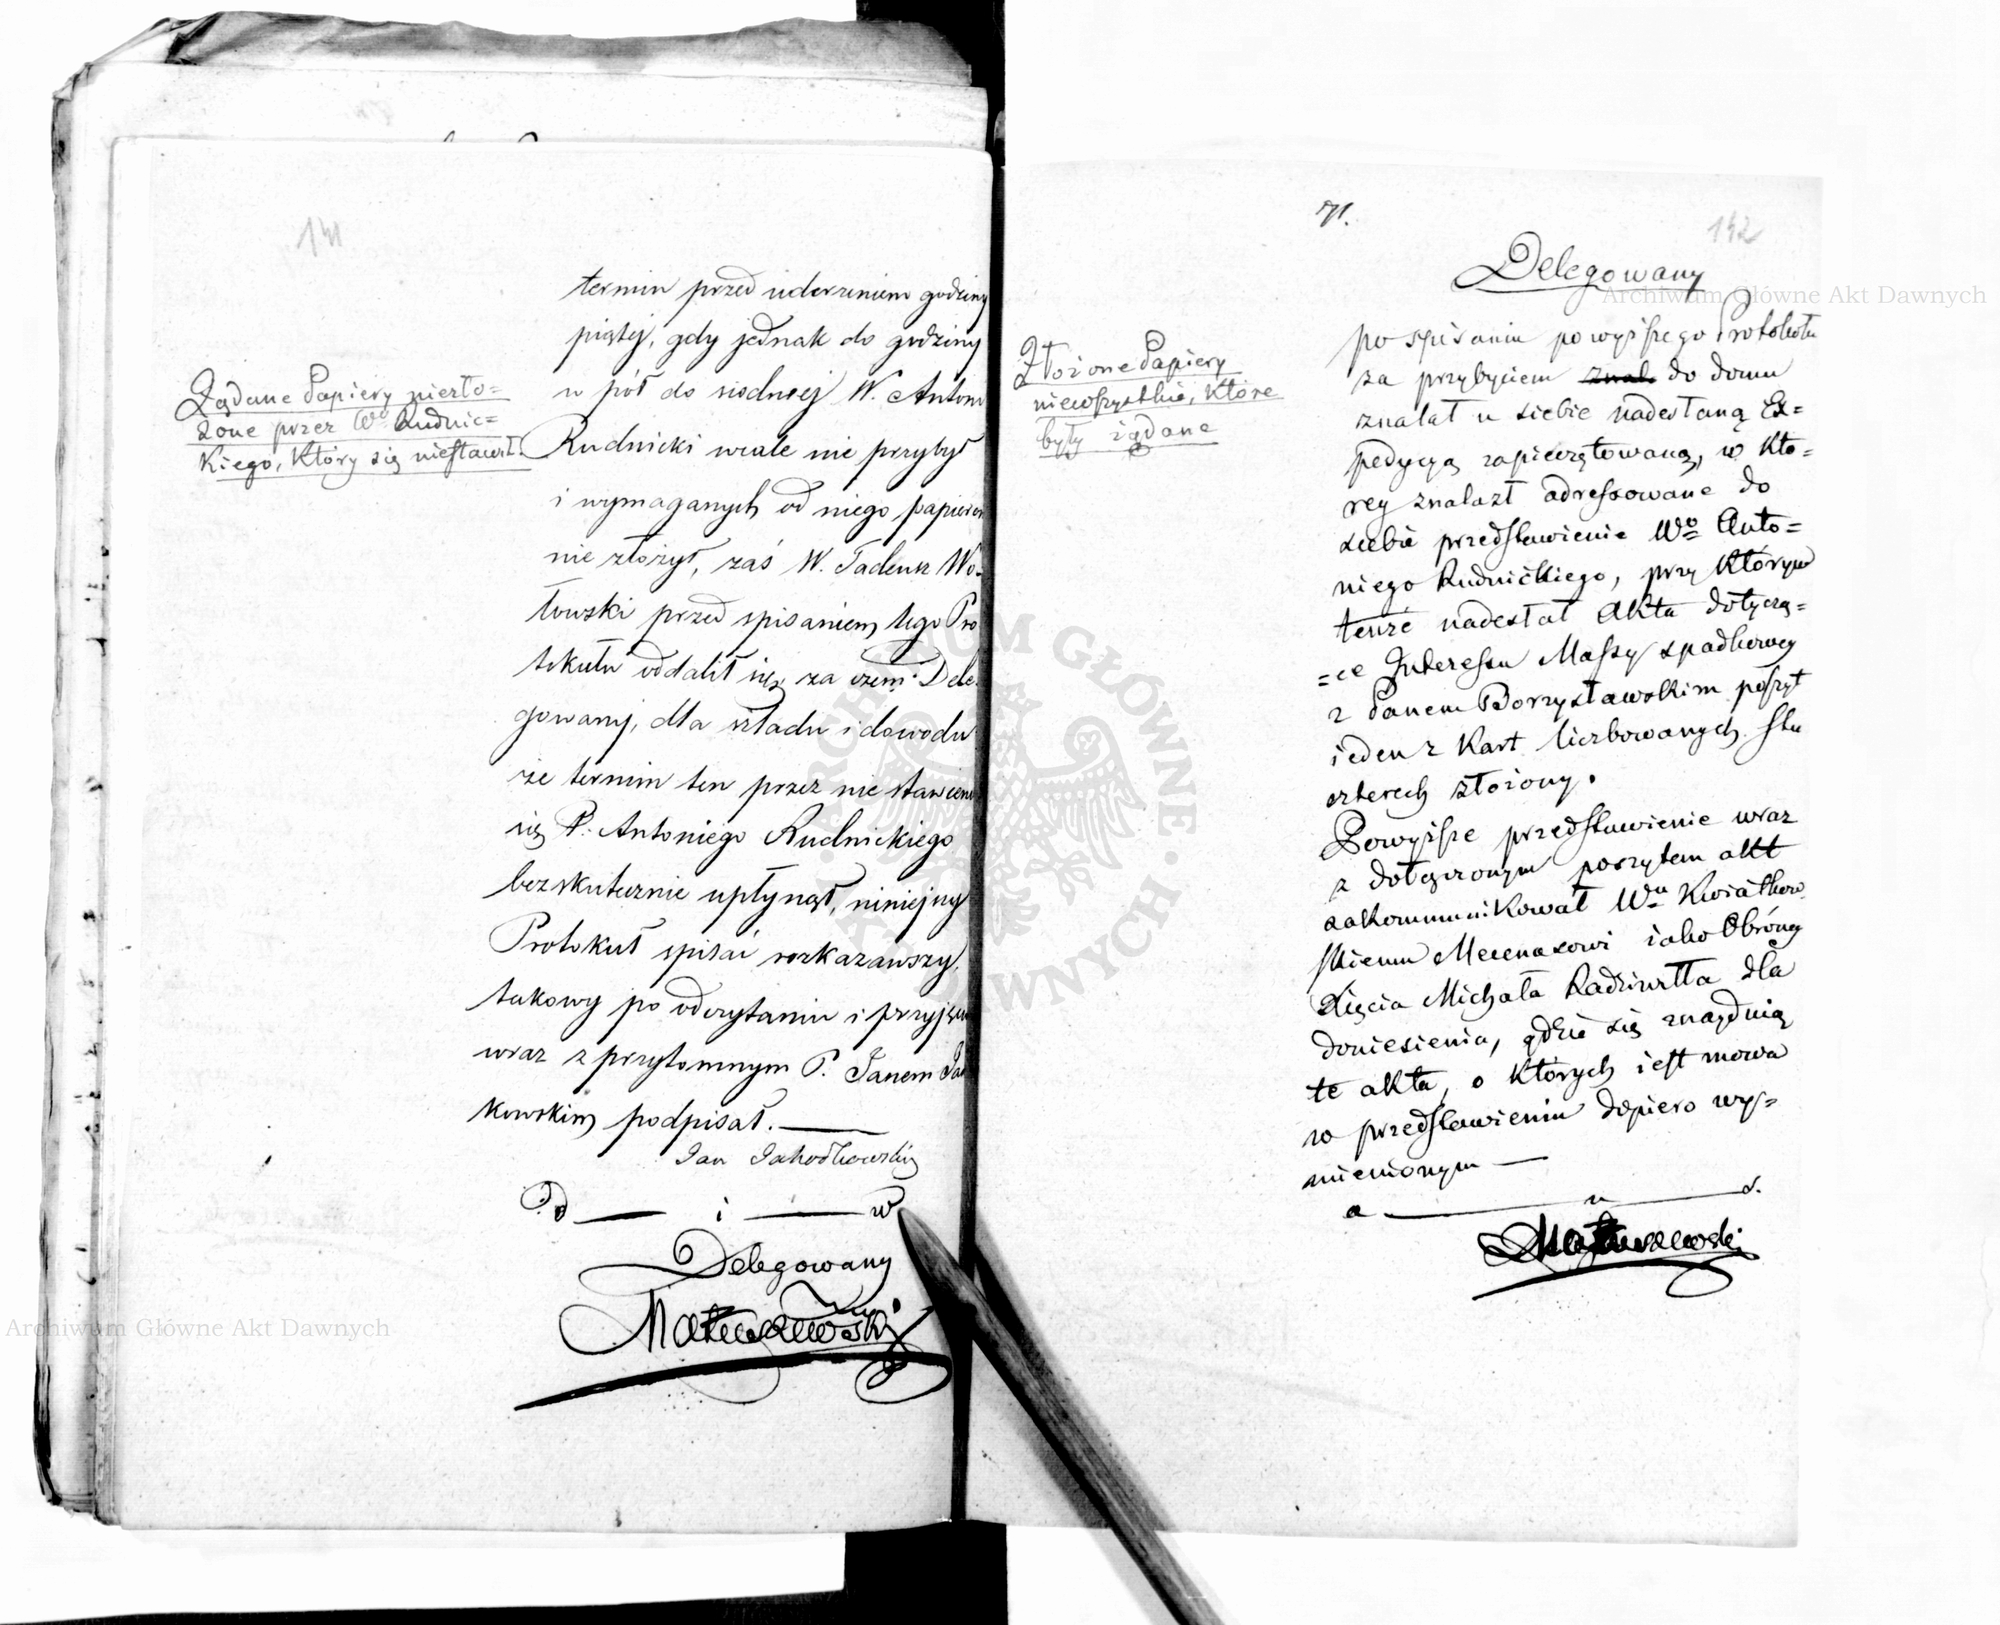 141
Żądane Papiery niezło=
żone przez Wo Rudnic=
kiego, który się niestawił.
termin przed uderzeniem godziny
piątej, gdy jednak do godziny
w pół do siodmej W. Antoni
Rudnicki wcale nie przybył
i wymaganych od niego papierów
nie złożył, zaś W. Tadeusz Wo-
łowski przed spisaniem tego Pro
tokułu oddalił się, za czem Dele
gowany, dla śladu i dowodu
że termin ten przez nie stawienie
się P. Antoniego Rudnickiego
bezskutecznie upłynął, niniejszy
Protokuł spisać rozkazawszy,
takowy po odczytaniu i przyjęciu
wraz z przytomnym P. Janem Ja
kowskim podpisał.
Jan Jakodkowski
P. d i w
Delegowany
Matuszewski
71.
142
Delegowany
Złożone Papiery
niewszystkie, które
były żądane
po spisaniu powyższego Protokołu
za przybyciem znal do domu
znalał u siebie nadesłaną Ex=
pedycyą zapieczętowaną, w któ=
rey znalazł adressowane do
siebie przedstawienie Wo Anto=
niego Rudnickiego, przy którym
tenże nadesłał Akta dotyczą=
=ce Interessu Massy spadkowey
z Panem Borzysławskim poszyt
ieden z kart liczbowanych stu
czterech złożony.
Powyższe przedstawienie wraz
z dołączonym poszytem akt
zakommunikował Wu Kwiatkow
skiemu Mecenasowi iako Obrońcy
Xięcia Michała Radziwiłła dla
doniesienia, gdzie się znaydują
te akta, o których iest mowa
w przedstawieniu dopiero wy=
mienionym
a u s.
Matuszewski
Archiwum Główne Akt Dawnych
Archiwum Główne Akt Dawnych
ARCHIWUM GŁÓWNE · AKT DAWNYCH ·